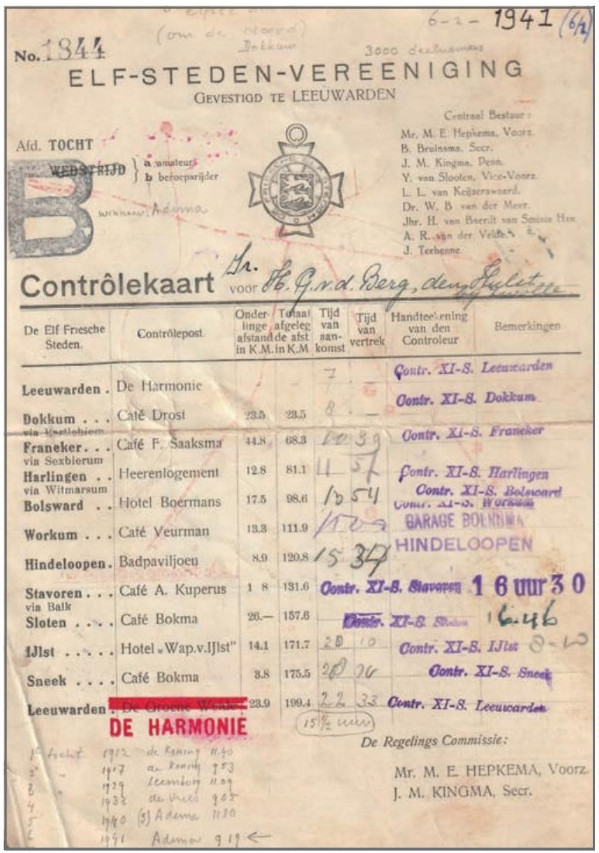 6-2-1941 (6/2)
(om de Noord)
Dokkum
3000 deelnemers
No. 1844
ELF-STEDEN-VEREENIGING
GEVESTIGD TE LEEUWARDEN
Centraal Bestuur:
Mr. M. E. Hepkema, Voorz.
B. Bruinsma, Secr.
J. M. Kingma, Penn.
Y. van Slooten, Vice-Voorz.
L. L. van Keijzerswaard.
Dr. W. B van der Meer.
Jhr. H. van Baerdt van Sminia Hzn.
A. R. van der Velde
J. Terhenne
Afd. TOCHT
WEDSTRIJD } a amateurs
b beroeprijder
B
winnaar: Adema
Contrôlekaart voor Hr. H. G. v. d. Berg, den Hulst
De Elf Friesche Steden. Contrôlepost. Onderlinge afstand in K.M. Totaal afgelegde afst in K.M Tijd van aankomst Tijd van vertrek Handteekening van den Controleur Bemerkingen
Leeuwarden . De Harmonie 7 - Contr. XI-S. Leeuwarden
Dokkum . . . Café Drost 23.5 23.5 8 - Contr. XI-S. Dokkum
Franeker . . . Café F. Saaksma 44.8 68.3 10 39 Contr. XI-S. Franeker
via Sexbierum
Harlingen . . Heerenlogement 12.8 81.1 11 57 Contr. XI-S. Harlingen
via Witmarsum
Bolsward . . Hotel Boermans 17.5 98.6 54 Contr. XI-S. Bolsward
Workum . . . Café Veurman 13.3 111.9 Contr. XI-S. Workum
GARAGE
Hindeloopen. Badpaviljoen 8.9 120.8 15 34 HINDELOOPEN
Stavoren . . . Café A. Kuperus 1 8 131.6 Contr. XI-S. Stavoren 16 uur 30
via Balk
Sloten . . . . Café Bokma 26.— 157.6 Contr. XI-S. Sloten
IJlst . . . . . Hotel „Wap.v.IJlst" 14.1 171.7 20 10 Contr. XI-S. IJlst 8-10
Sneek . . . . Café Bokma 3.8 175.5 Contr. XI-S. Sneek
Leeuwarden. De Groene Weide 23.9 199.4 22 33 Contr. XI-S. Leeuwarden
DE HARMONIE
15½ uur
De Regelings Commissie:
Mr. M. E. HEPKEMA, Voorz.
J. M. KINGMA, Secr.
1e tocht 1912 de Koning 11.40
2e " 1917 de Koning 9.53
3 " 1929 Leemburg 11.09
4 1933 de Vries 9.05
5 1940 (5) Adema 11.30
6 1941 Adema 9.19 ←